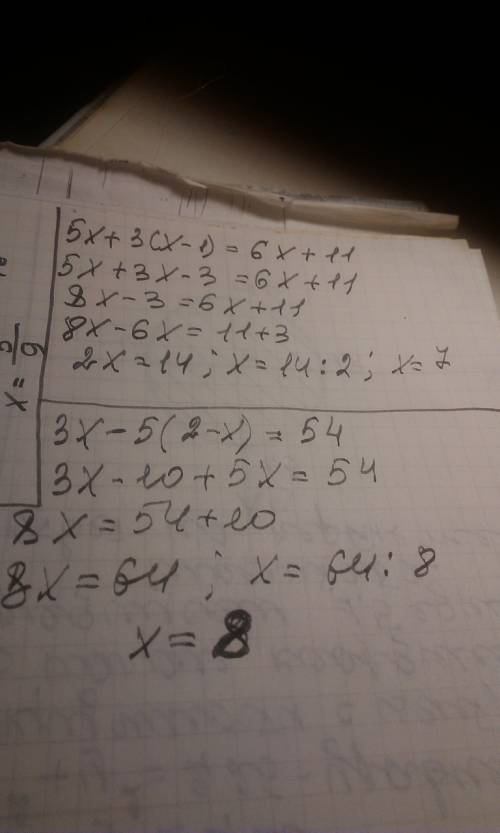 5x+3(x-1)=6x+11
5x+3x-3=6x+11
8x-3=6x+11
8x-6x=11+3
2x=14; x=14:2; x=7
x=5/9
3x-5(2-x)=54
3x-10+5x=54
8x=54+10
8x=64; x=64:8
x=8